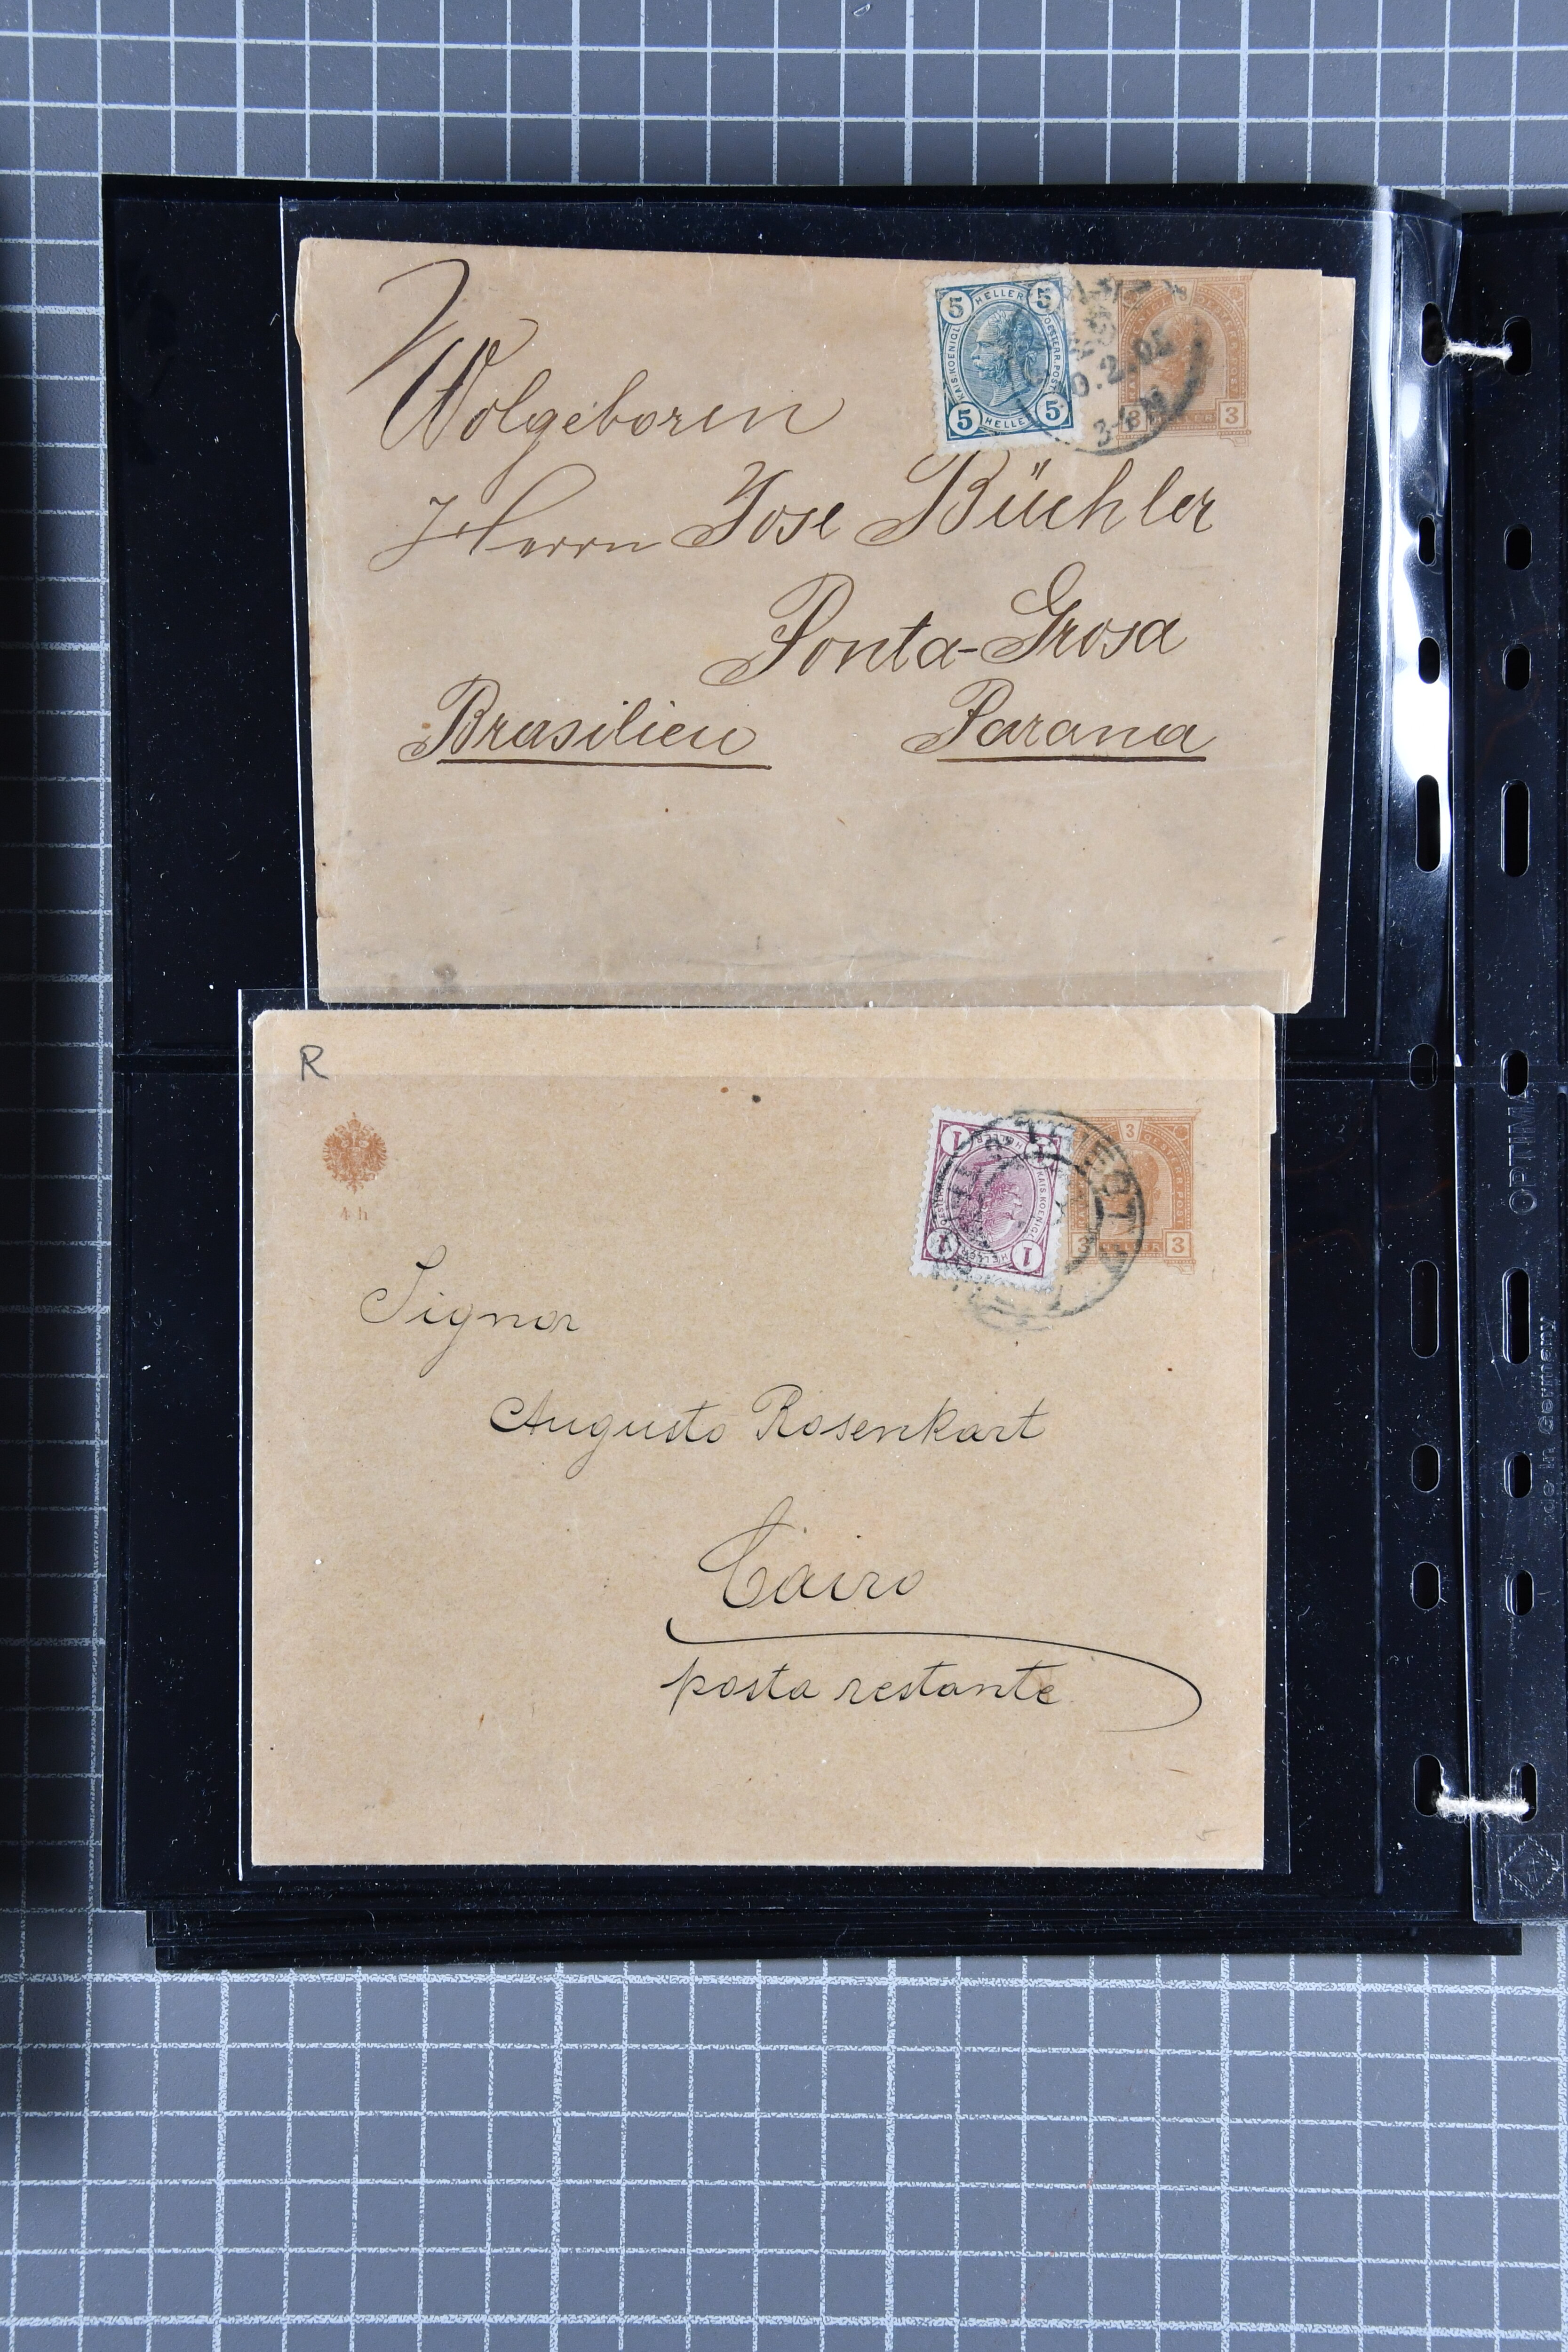 Wolgeboren
Herrn Jose Büchler
Ponta-Grosa
Brasilien Parana
5 HELLER 5
KAIS. KOENIGL. OESTERR. POST
5 HELLER 5
0.2.02
3
R
4 h
1 HELLER 1
KAIS. KOENIGL.
1 HELLER 1
TRIEST
3
3 3
Signor
Augusto Rosenkart
Cairo
posta restante
OPTIMA
de in Germany